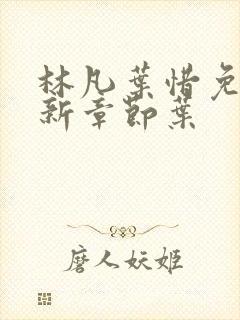 林凡葉惜免
新章節葉
磨人妖姬